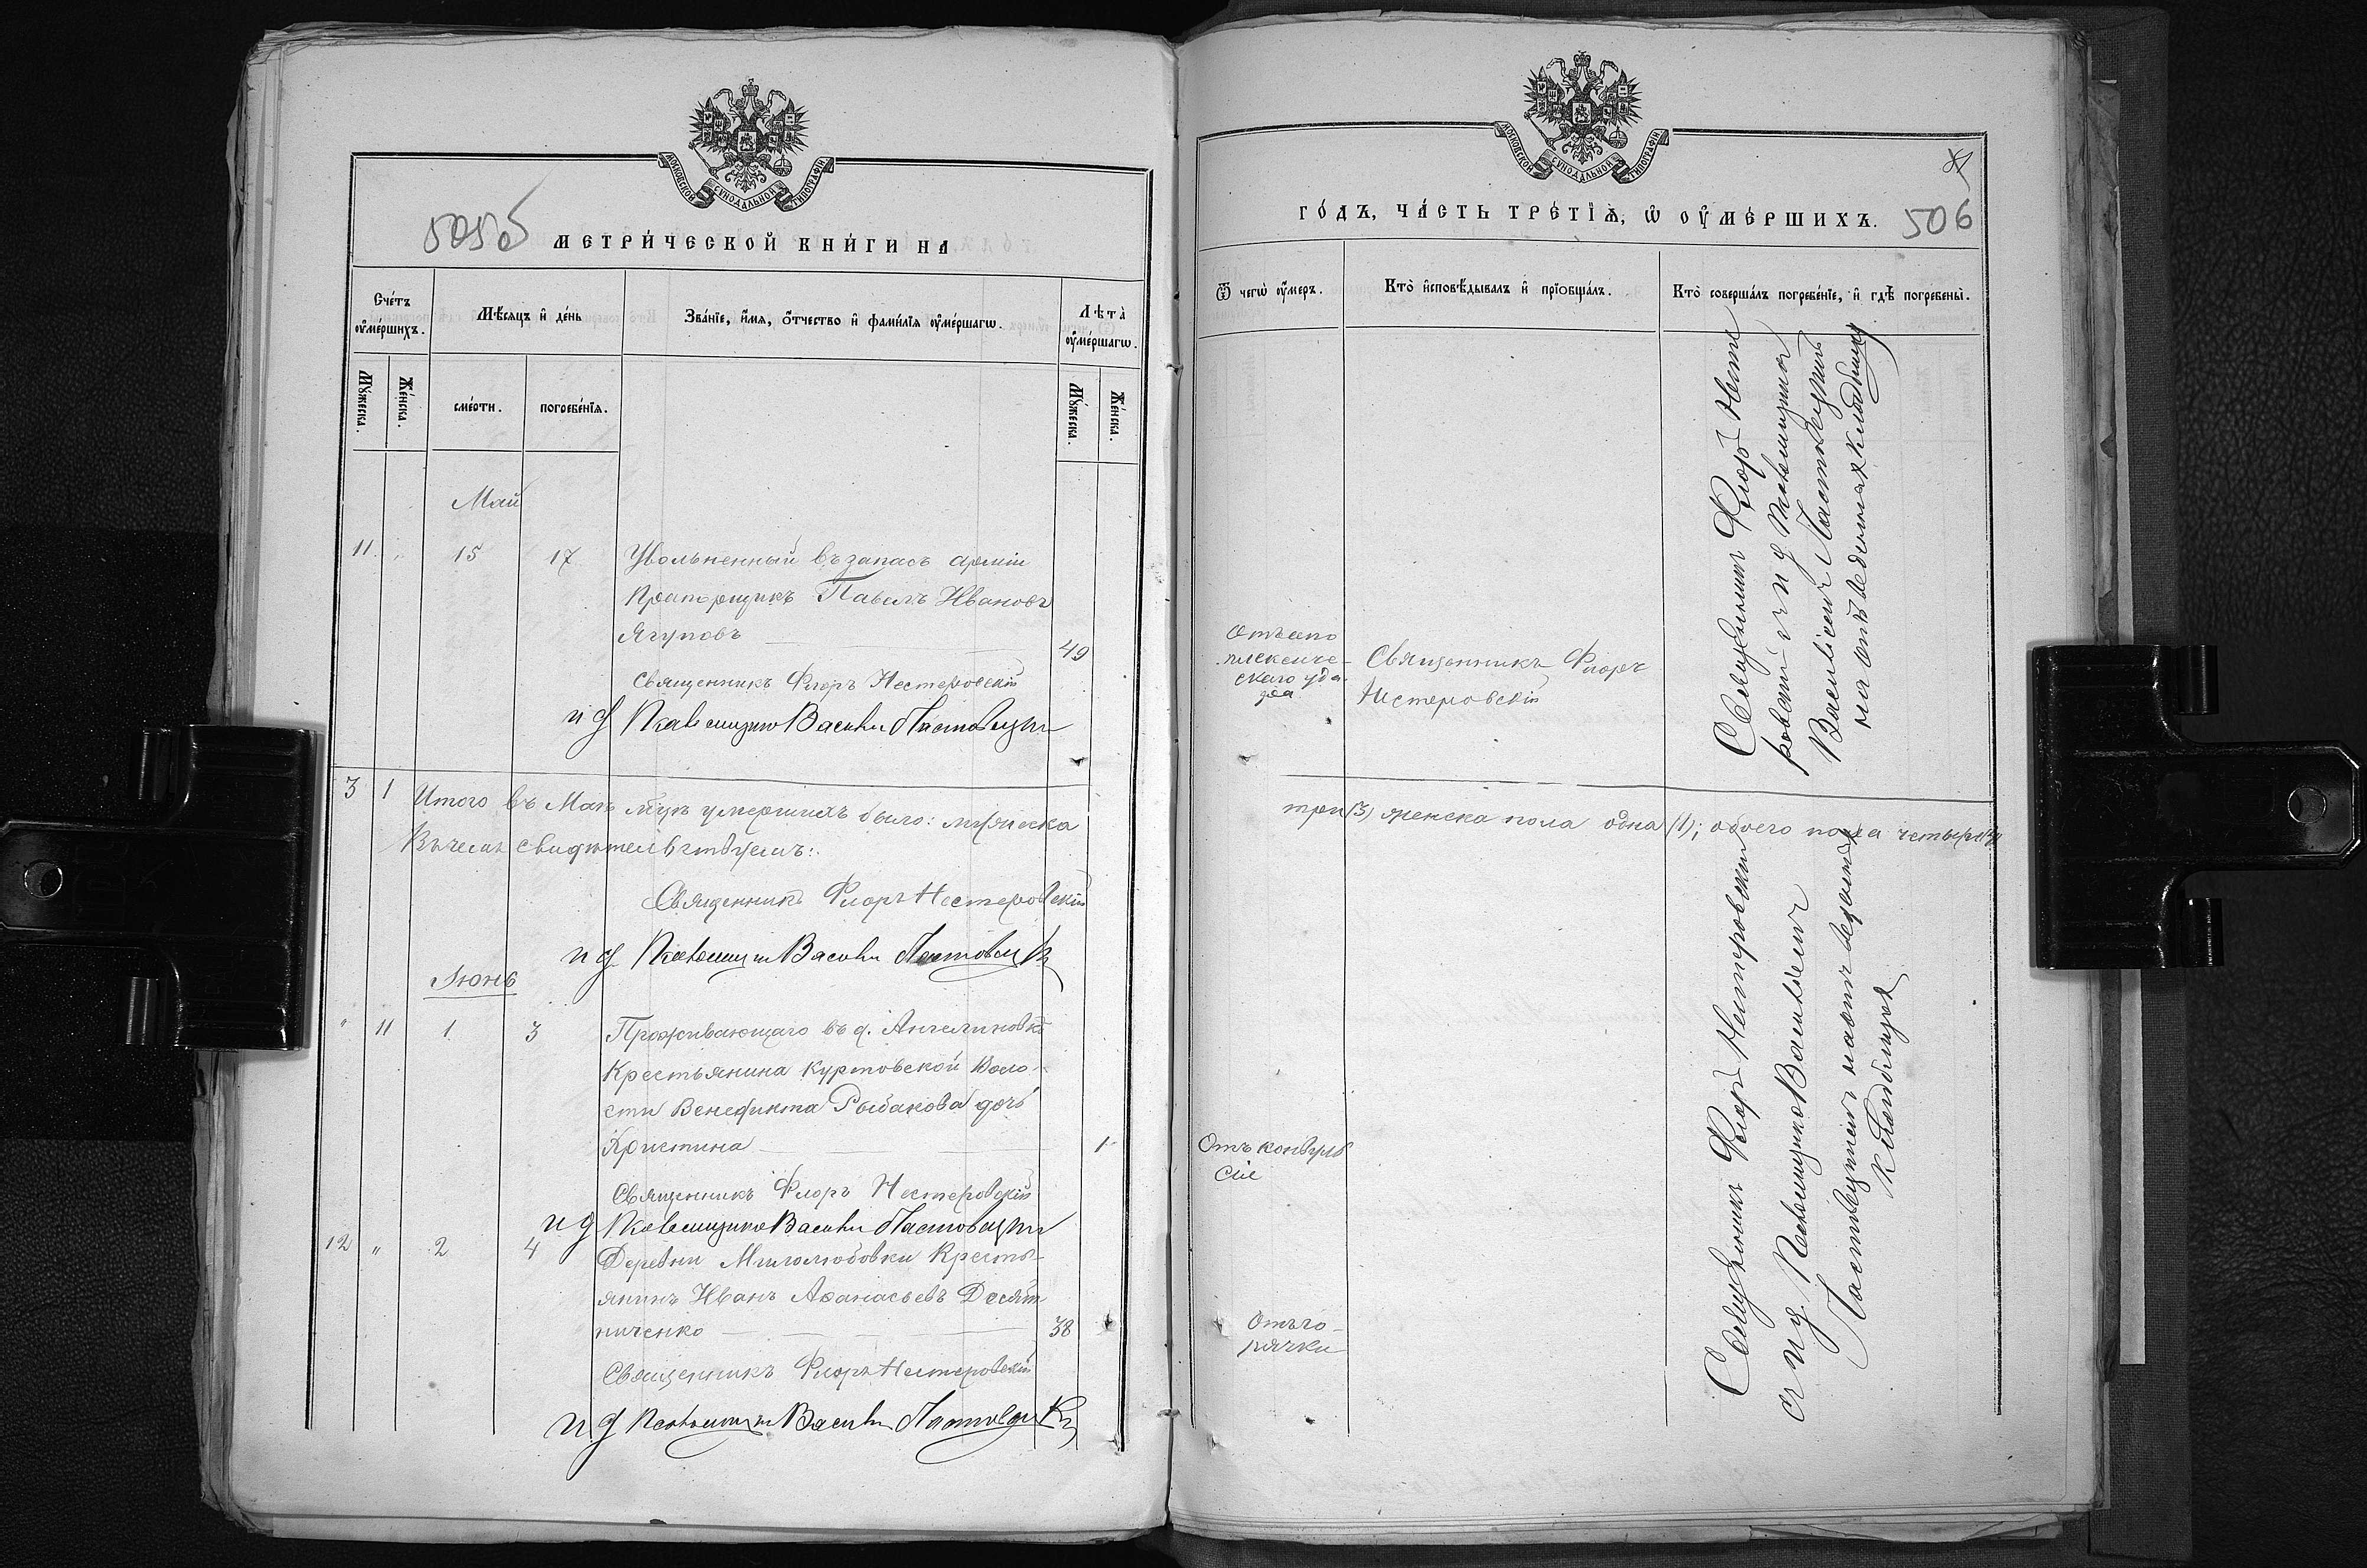 МОСКОВСКОЙ СѴНОДАЛЬНОЙ ТИПОГРАФІИ
505б
МЕТРИ́ЧЕСКОЙ КНИ́ГИ НА
Сче́тъ ᲂу҆ме́ршихъ.
Мѣ́сяцъ и҆ де́нь
Зва́нїе, и҆́мя, ѻ҆́тчество и҆ фами́лїя ᲂу҆ме́ршагѡ.
Лѣта̀ ᲂу҆ме́ршагѡ.
Мꙋ́жеска.
Же́нска.
сме́рти.
погребе́нїя.
Мꙋ́жеска.
Же́нска.
Май
11. " 15 17 Увольненный въ запасъ арміи
Прапорщикъ Павелъ Ивановъ
Ягуповъ 49
Священникъ Флоръ Нестеровскій
и д Псаломщика Василій
3 1 Итого въ Маѣ м-цѣ умершихъ было: мужеска
Въ чемъ свидѣтельствуемъ:
Священникъ Флоръ Нестеровскій
и д Псаломщика Василій
Іюнь
" 11 1 3 Проживающаго въ д. Ангелиновкѣ
Крестьянина Куртовской Воло-
сти Венедикта Рыбакова дочь
Христина 1
Священникъ Флоръ Нестеровскій
и д Псаломщика Василій
12 " 2 4 Деревни Миролюбовки Кресть-
янинъ Иванъ Аѳанасьевъ Десят
ниченко 38
Священникъ Флоръ Нестеровскій
и д Псаломщика Василій
МОСКОВСКОЙ СѴНОДАЛЬНОЙ ТИПОГРАФІИ
ГО́ДЪ, ЧА́СТЬ ТРЕ́ТЇѦ, Ѡ҆ ОУ҆МЕ́РШИХЪ.
506
Ѿ чегѡ̀ ᲂу҆́меръ.
Кто̀ и҆сповѣ́дывалъ и҆ прїѡбща́лъ.
Кто̀ соверша́лъ погребе́нїе, и҆ гдѣ̀ погребены̀.
Отъ апо
плексиче-
скаго уда-
ра
Священникъ Флоръ
Нестеровскій
Священникъ Флоръ Несте
ровскій съ и д Псаломщика
Василіемъ
кладбищѣ
три (3) женска пола одна (1); обоего пола четыре (4)
Отъ конвуль
сіи
Отъ го-
рячки
Священникъ Флоръ Нестеровскій
съ и д Псаломщика Василіемъ
кладбищѣ